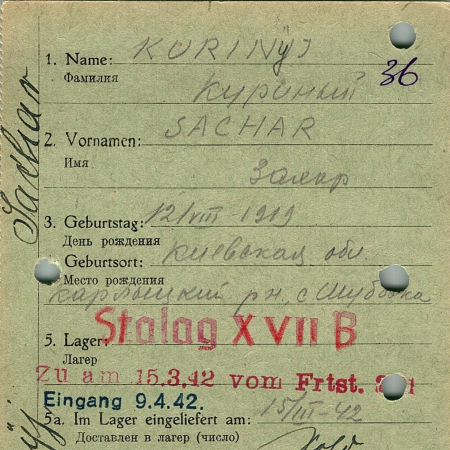 KURINYJ
1. Name:
36
Фамилия
Куриный
SACHAR
2. Vornamen:
Имя
Захар
Sachar
3. Geburtstag: 12/VIII-1919
День рождения
Киевская обл.
Geburtsort:
Место рождения
рн. с. Шубовка
Stalag XVII B
5. Lager:
Лагерь
Zu am 15.3.42 vom Frtst.
Eingang 9.4.42.
15/III-42
5a. Im Lager eingeliefert am:
Доставлен в лагерь (число)